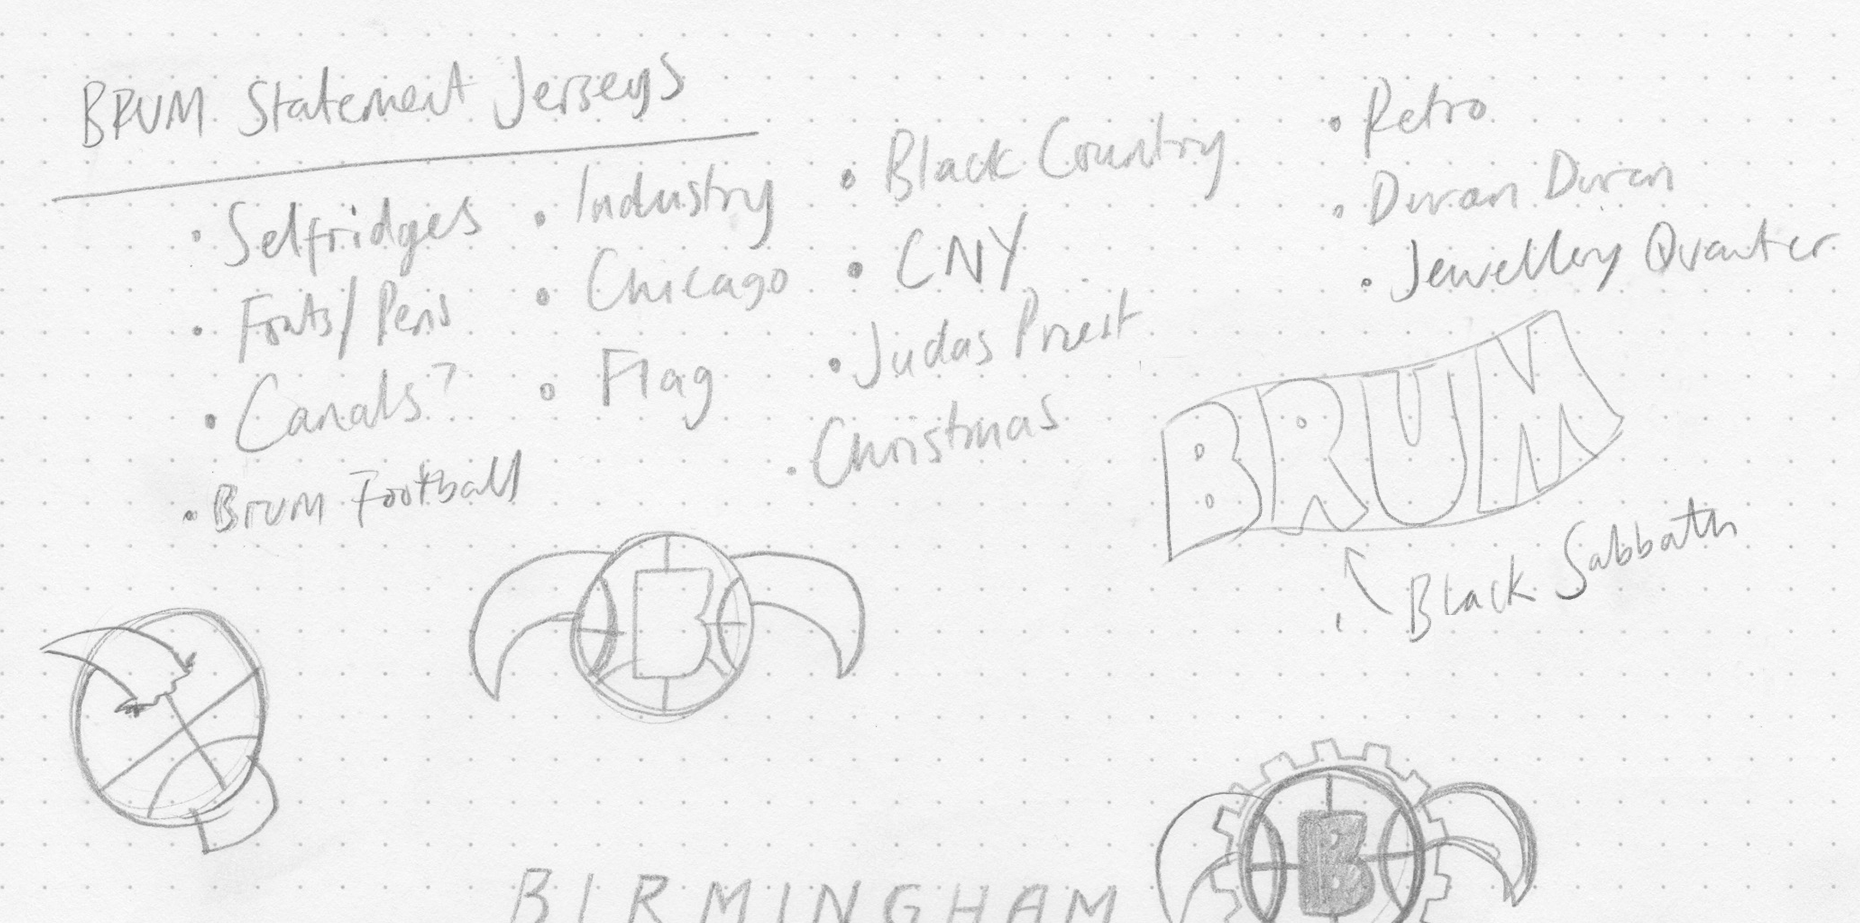 BRUM Statement Jerseys
• Selfridges
• Fonts/Pens
• Canals?
• Brum Football
• Industry
• Chicago
• Flag
• Black Country
• CNY
• Judas Priest
• Christmas
• Retro
• Duran Duran
• Jewellery Quarter
BRUM
Black Sabbath
B
B
BIRMINGHAM